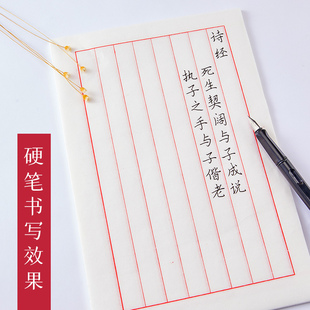 诗经
死生契阔与子成说
执子之手与子偕老
硬笔书写效果